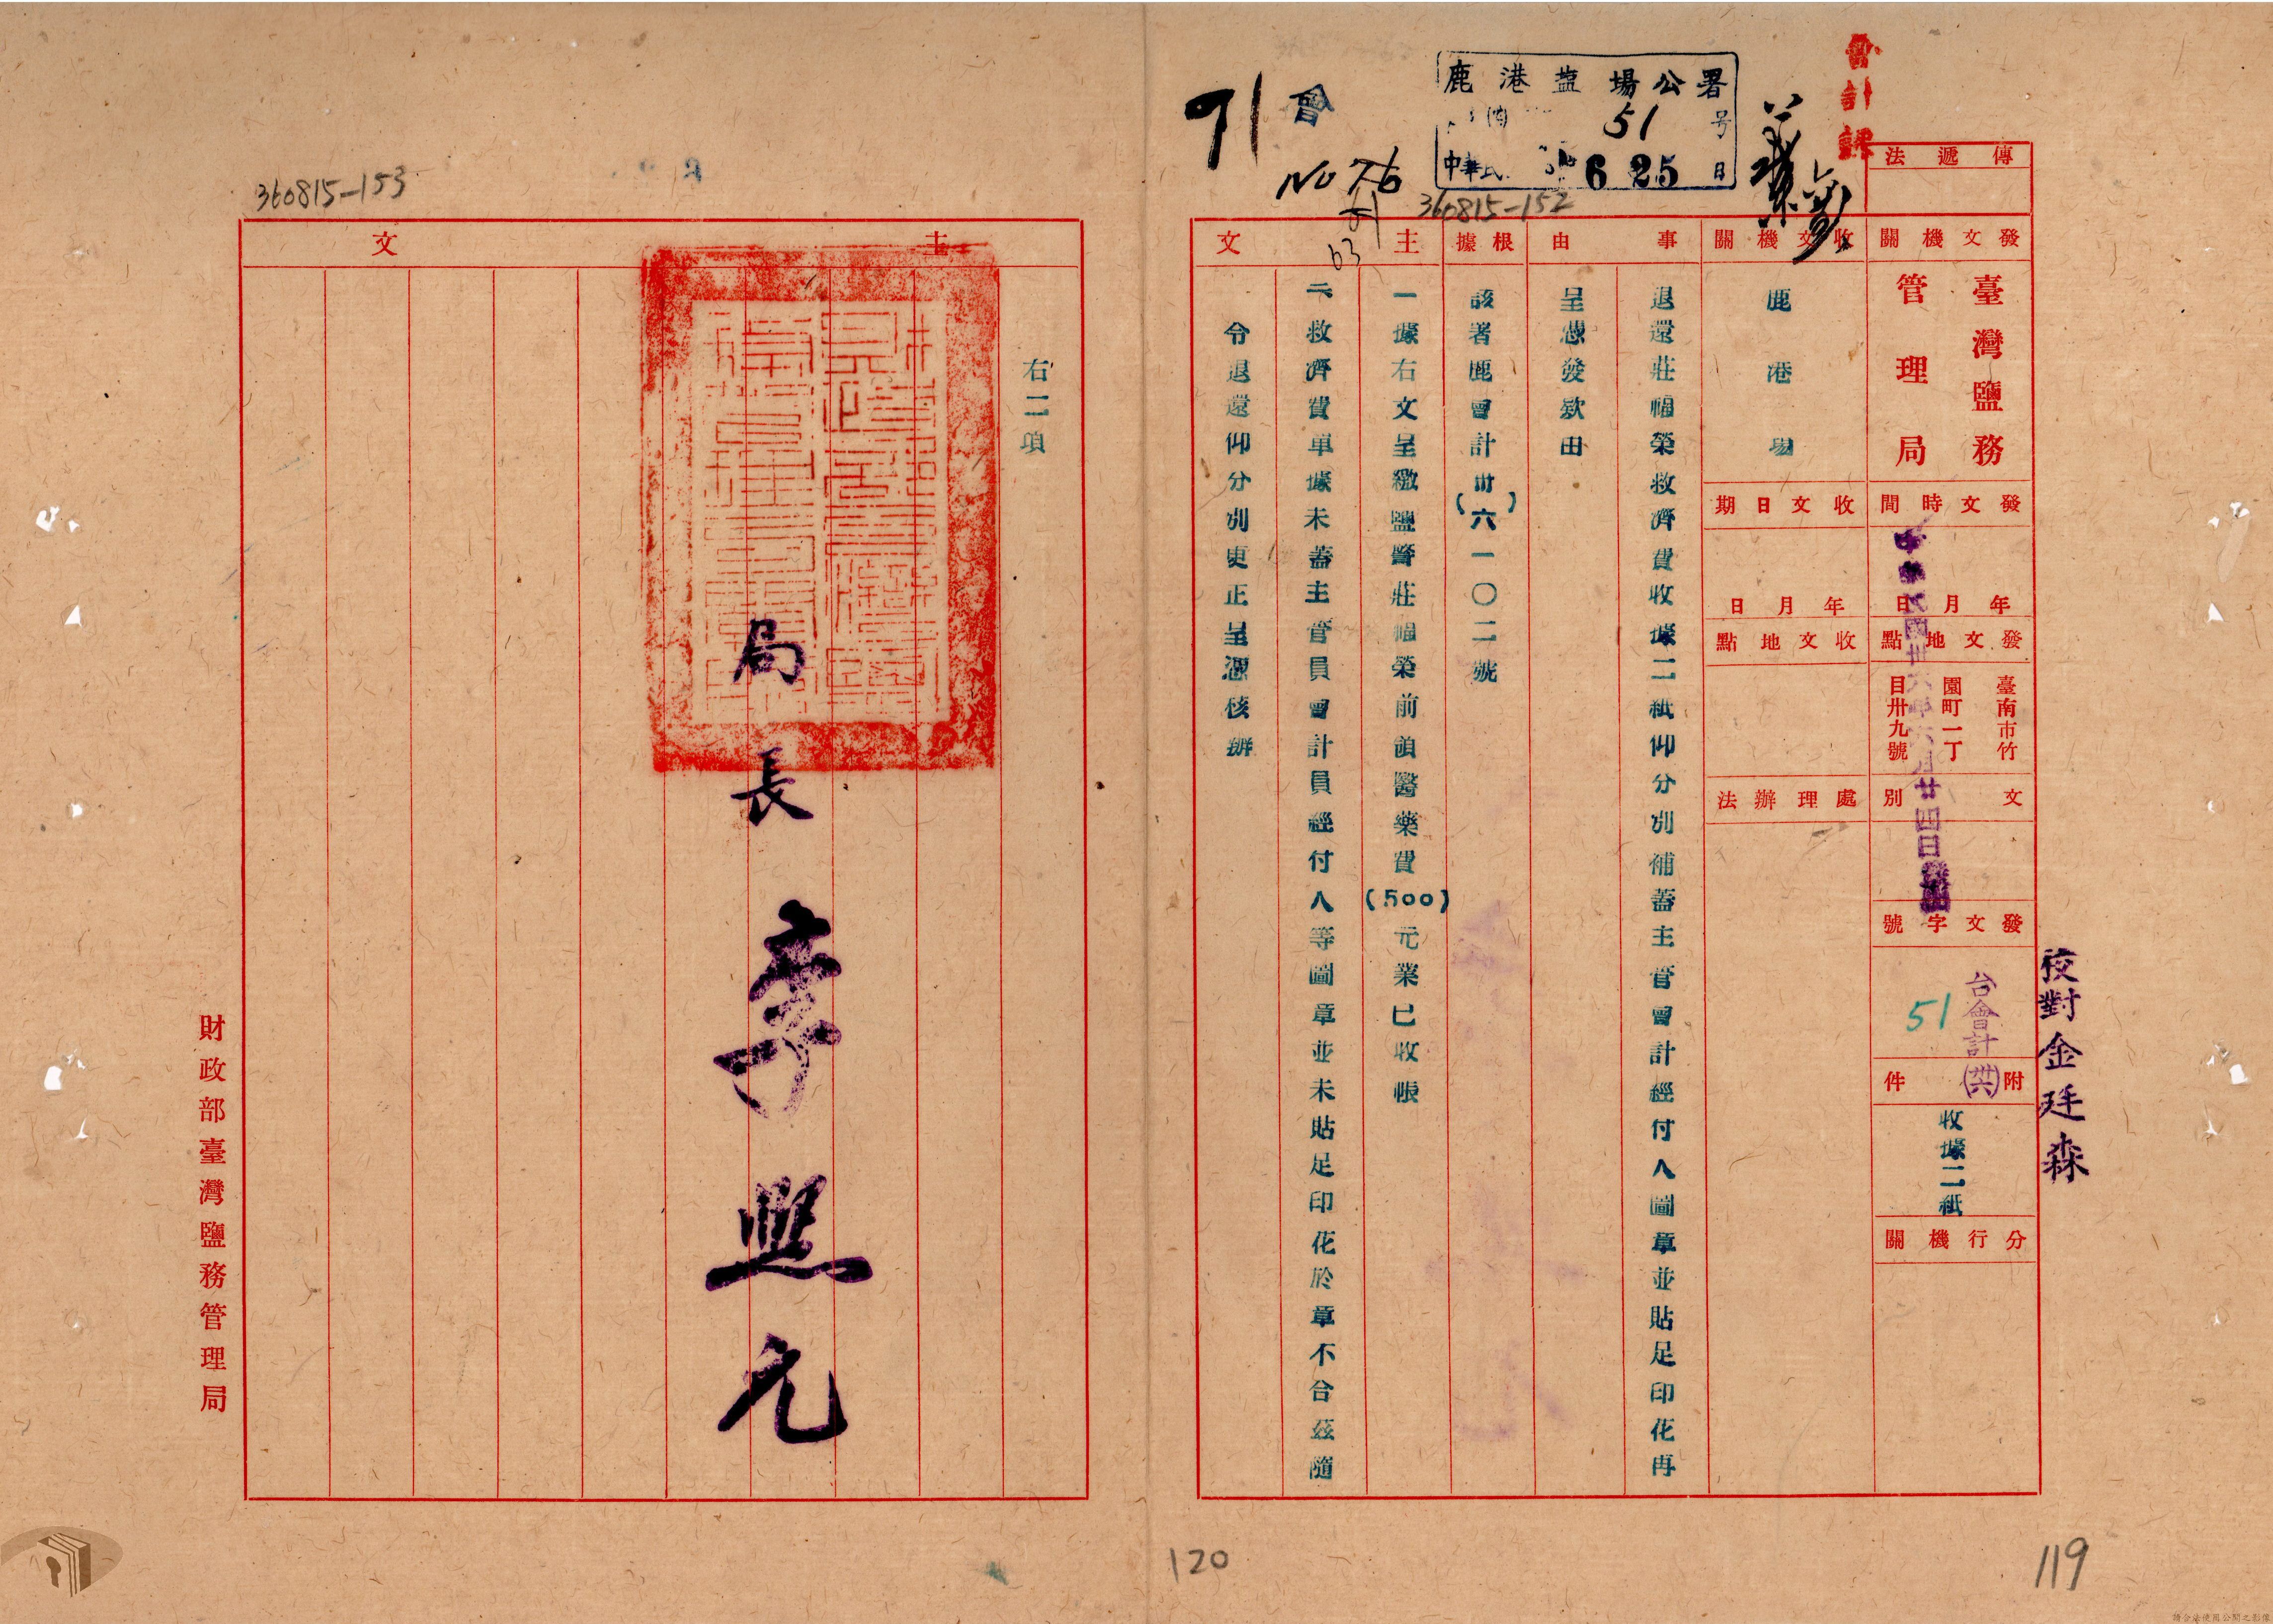 會計課
傳遞法
發文機關
臺灣鹽務
管理局
發文時間
年月日
中華民國卅六年六月廿四日
發文地點
臺南市竹
園町一丁
目卅九號
文別
發文字號
台會計(卅六)
51
附件
收據二紙
分行機關
校對金廷森
收文機關
鹿港場
收文日期
年月日
收文地點
處理辦法
鹿港盐場公署
51号
中華民 6 25日
事由
退還莊福榮救濟費收據二紙仰分別補蓋主管會計經付人圖章並貼足印花再
呈憑發款由
根據
該署鹿會計(卅六)一〇二號
主文
一據右文呈繳鹽警莊福榮前領醫藥費(500)元業已收帳
二救濟費單據未蓋主管員會計員經付人等圖章並未貼足印花於章不合茲隨
令退還仰分別更正呈憑核辦
會
71
No 76
63
360815-152
119
360815-153
主文
右二項
局長李興元
財政部臺灣鹽務管理局
120
請合法使用公開之影像